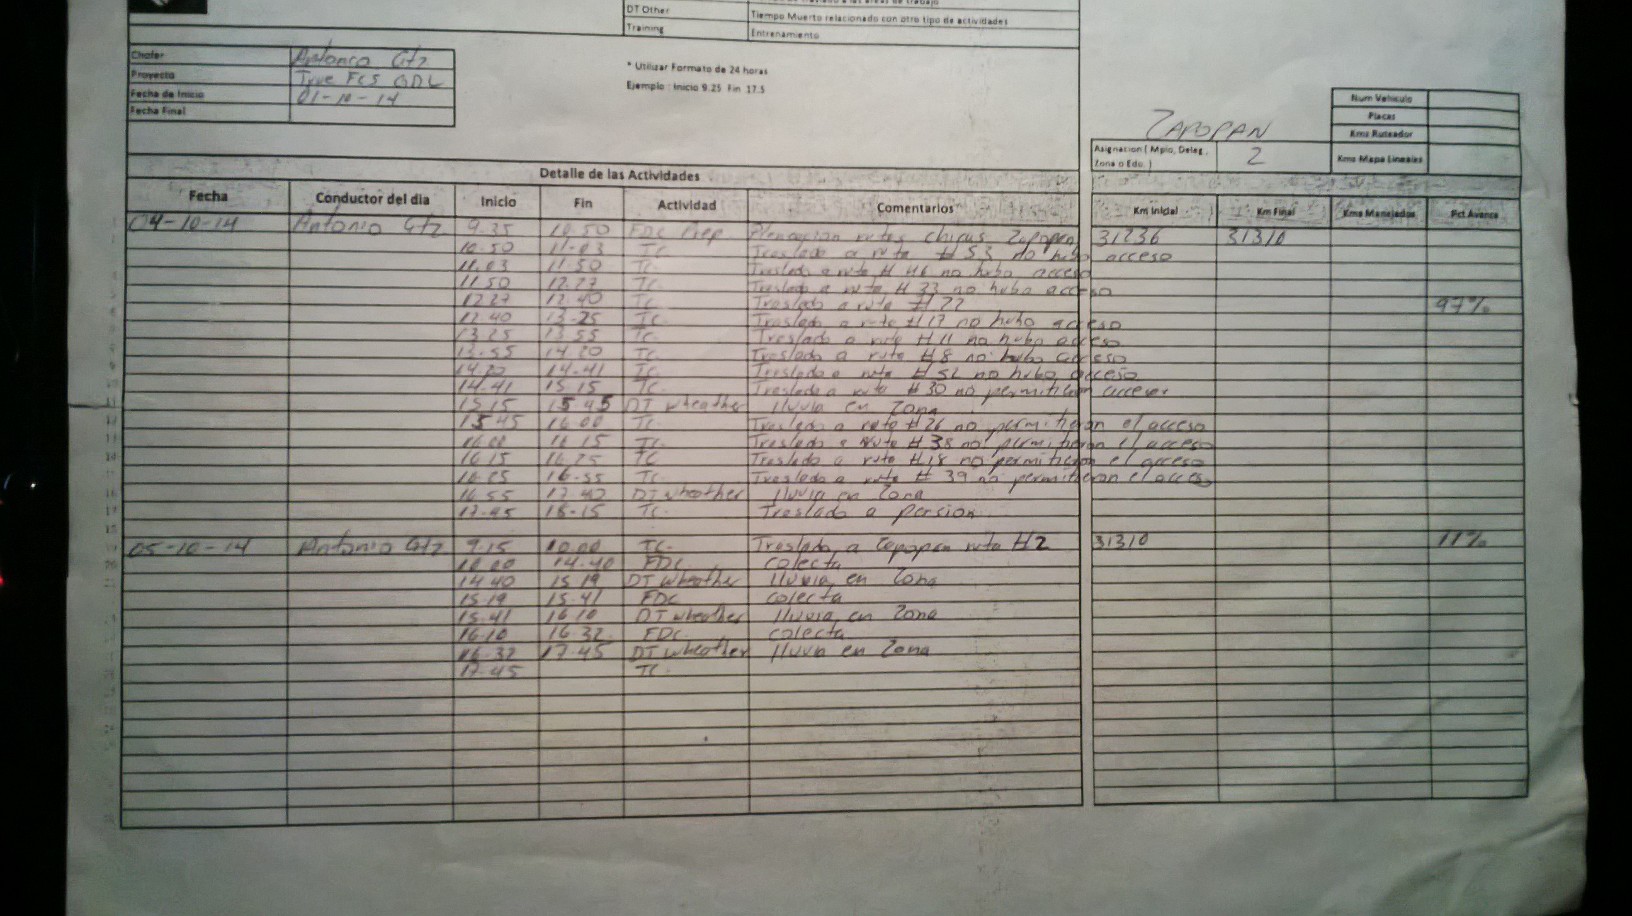 DT Other Tiempo Muerto relacionado con otro tipo de actividades
Training Entrenamiento
Chofer Antonio Gtz
Proyecto Type FCS GDL
Fecha de Inicio 01-10-14
Fecha Final
* Utilizar Formato de 24 horas
Ejemplo : Inicio 9.25 Fin 17.5
Num Vehiculo
Placas
Kms Ruteador
Kms Mapa Lineales
ZAPOPAN
Asignacion ( Mpio, Deleg, Zona o Edo. ) 2
Detalle de las Actividades
Fecha Conductor del dia Inicio Fin Actividad Comentarios Km Inicial Km Final Kms Manejados Pct Avance
04-10-14 Antonio Gtz 9-35 10-50 FDC Prep Planeacion rutas chicas Zapopan 31236 31310
10-50 11-03 TC Traslado a ruta # 53 no hubo acceso
11.03 11.50 TC Traslado a ruta # 46 no hubo acceso
11.50 12.27 TC Traslado a ruta # 33 no hubo acceso
12.27 12.40 TC Traslado a ruta # 22 97%
12.40 13-25 TC Traslado a ruta # 17 no hubo acceso
13.25 13.55 TC Traslado a ruta # 11 no hubo acceso
13-55 14.20 TC Traslado a ruta # 8 no hubo acceso
14.20 14-41 TC Traslado a ruta # 52 no hubo acceso
14-41 15.15 TC Traslado a ruta # 30 no permitieron acceder
15.15 15.45 DT wheather lluvia en Zona
15.45 16.00 TC Traslado a ruta # 26 no permitieron el acceso
16.00 16 15 TC Traslado a ruta # 38 no permitieron el acceso
16.15 16.25 TC Traslado a ruta # 18 no permitieron el acceso
16.25 16-55 TC Traslado a ruta # 39 no permitieron el acceso
16.55 DT wheather lluvia en Zona
17-45 18-15 TC Traslado a pension
05-10-14 Antonio Gtz 9.15 10.00 TC Traslado a Zapopan ruta # 2 31310 11%
10.00 14-40 FDC colecta
14.40 15 19 DT wheather lluvia en Zona
15-19 15-41 FDC colecta
15-41 16.10 DT wheather lluvia en Zona
16.10 16-32 FDC colecta
16-32 17-45 DT wheather lluvia en Zona
17-45 TC